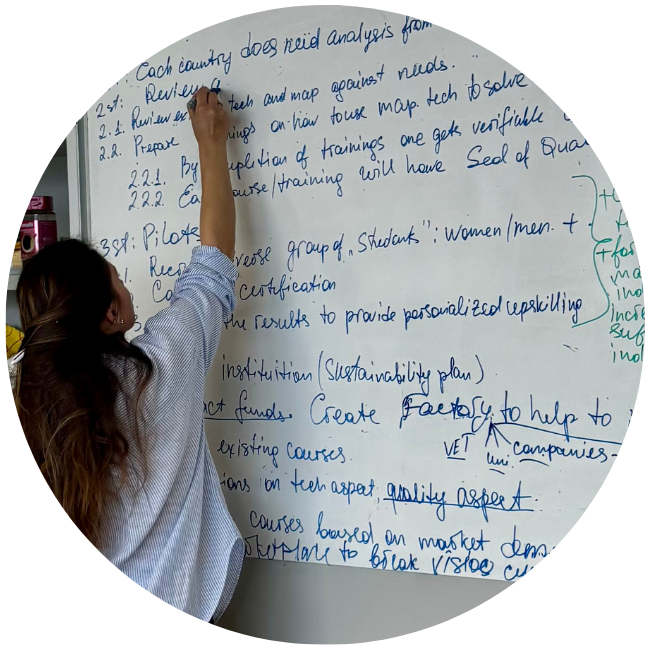 : Each country does neid analysis from
2st: Review
2.1. Review ex tech and map against needs.
2.2. Prepare nings on how to use map. tech to solve
2.2.1. By mpletion of trainings one gets verifiable
2.2.2. Ea ourse/training will have Seal of Qua
3st: Pilot
1. Recr verse group of „Students": women/men. +
Co certification
the results to provide personalized upskilling
instituition (Sustainability plan)
act funds. Create Factory to help to
VET uni companies
existing courses.
ions on tech aspect, quality aspect.
courses based on market dem
to break
+
+for
ma
ind
incre
suf
ind